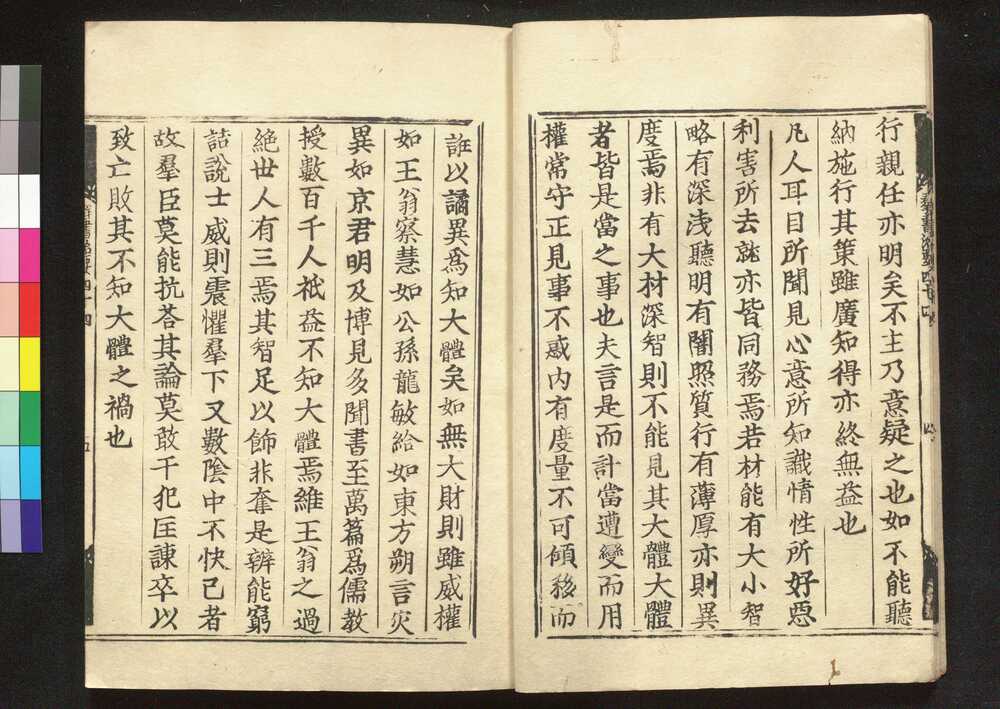 行親任亦明矣不主乃意疑之也如不能聽
納施行其策雖廣知得亦終無益也
凡人耳目所聞見心意所知識情性所好惡
利害所去就亦皆同務焉若材能有大小智
略有深淺聽明有闇照質行有薄厚亦則異
度焉非有大材深智則不能見其大體大體
者皆是當之事也夫言是而計當遭變而用
權常守正見事不惑内有度量不可傾移而
誑以譎異為知大體矣如無大財則雖威權
如王翁察慧如公孫龍敏給如東方朔言灾
異如京君明及博見多聞書至萬篇爲儒教
授數百千人祇益不知大體焉維王翁之過
絶世人有三焉其智足以飾非奪是辨能窮
詰説士威則震懼羣下又數陰中不快己者
故羣臣莫能抗荅其論莫敢干犯匡諫卒以
致亡敗其不知大體之禍也
群書治要四十四
五